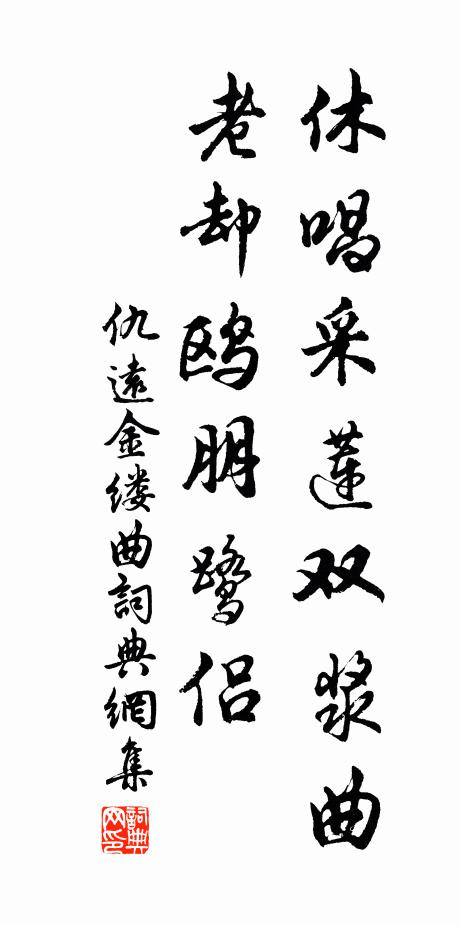 休唱采蓮双桨曲
老却鸥朋鹭侣
仇遠金缕曲詞典網集
詞典网印